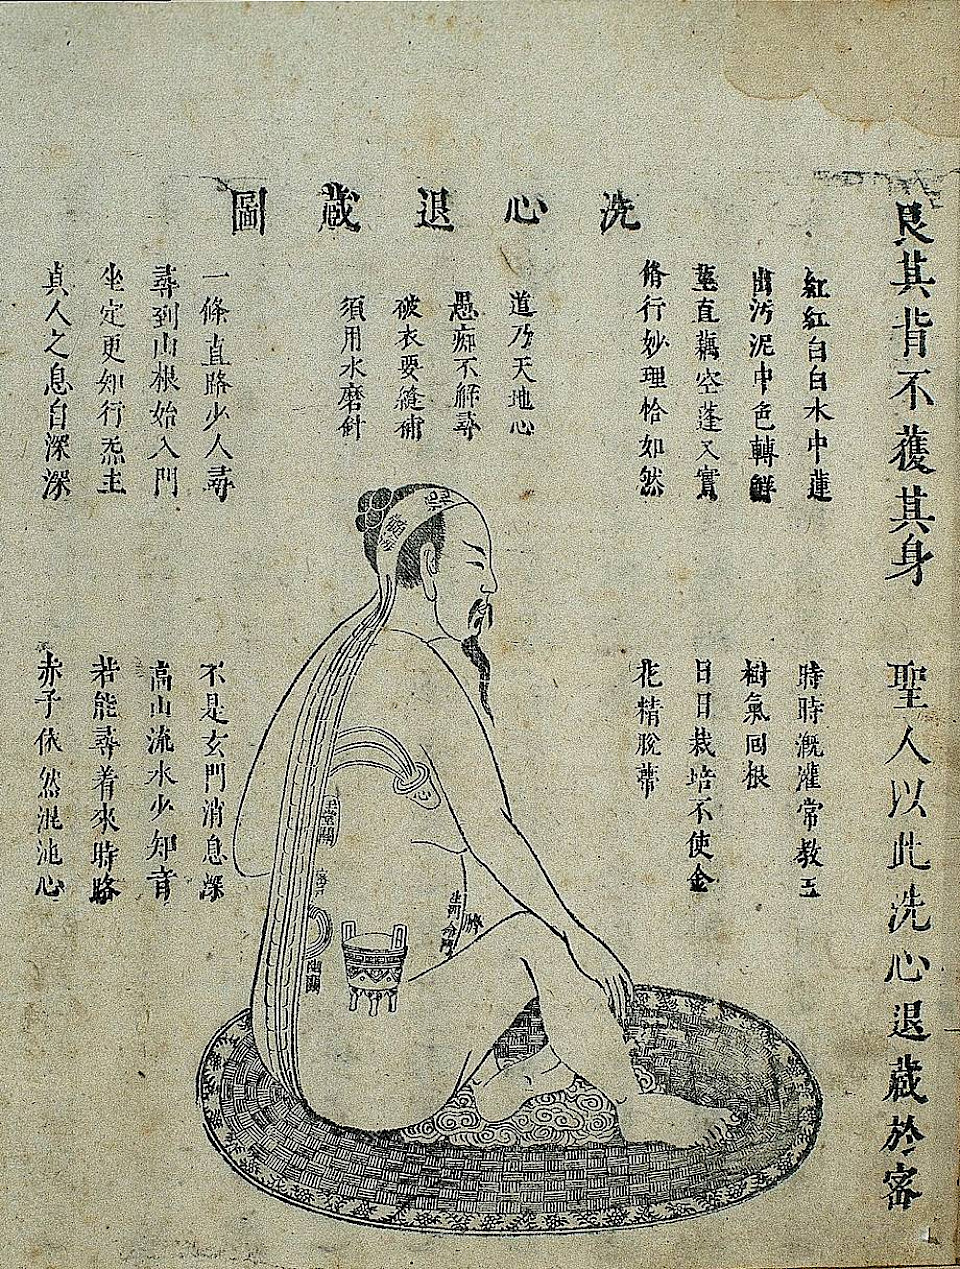 艮其背不獲其身
聖人以此洗心退藏於密
洗心退藏圖
紅紅白白水中蓮
出污泥中色轉鮮
莖直藕空蓬又實
脩行妙理恰如然
道乃天地心
愚痴不解尋
破衣要縫補
須用水磨針
一條直路少人尋
尋到山根始入門
坐定更知行炁主
真人之息自深深
時時溉灌常教玉
樹氣回根
日日栽培不使金
花精脫蒂
不是玄門消息深
高山流水少知音
若能尋着來時路
赤子依然混沌心
髓海
心
臍